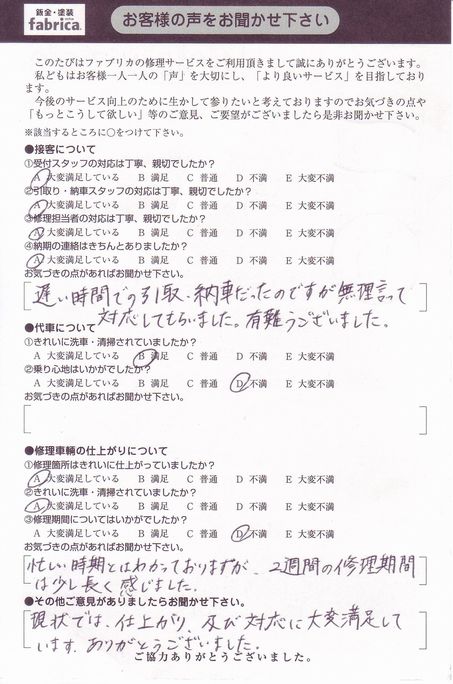 鈑金・塗装
fabrica.
お客様の声をお聞かせ下さい
このたびはファブリカの修理サービスをご利用頂きまして誠にありがとうございます。
私どもはお客様一人一人の「声」を大切にし、「より良いサービス」を目指しており
ます。
今後のサービス向上のために生かして参りたいと考えておりますのでお気づきの点や
「もっとこうして欲しい」等のご意見、ご要望がございましたら是非お聞かせ下さい。
※該当するところに○をつけて下さい。
●接客について
①受付スタッフの対応は丁寧、親切でしたか？
A 大変満足している B 満足 C 普通 D 不満 E 大変不満
②引取り・納車スタッフの対応は丁寧、親切でしたか？
A 大変満足している B 満足 C 普通 D 不満 E 大変不満
③修理担当者の対応は丁寧、親切でしたか？
A 大変満足している B 満足 C 普通 D 不満 E 大変不満
④納期の連絡はきちんとありましたか？
A 大変満足している B 満足 C 普通 D 不満 E 大変不満
お気づきの点があればお聞かせ下さい。
遅い時間での引取、納車だったのですが無理言って
対応してもらいました。有難うございました。
●代車について
①きれいに洗車・清掃されていましたか？
A 大変満足している B 満足 C 普通 D 不満 E 大変不満
②乗り心地はいかがでしたか？
A 大変満足している B 満足 C 普通 D 不満 E 大変不満
お気づきの点があればお聞かせ下さい。
●修理車輛の仕上がりについて
①修理箇所はきれいに仕上がっていましたか？
A 大変満足している B 満足 C 普通 D 不満 E 大変不満
②きれいに洗車・清掃されていましたか？
A 大変満足している B 満足 C 普通 D 不満 E 大変不満
③修理期間についてはいかがでしたか？
A 大変満足している B 満足 C 普通 D 不満 E 大変不満
お気づきの点があればお聞かせ下さい。
忙しい時期とはわかっておりますが、2週間の修理期間
は少し長く感じました。
●その他ご意見がありましたらお聞かせ下さい。
現状では、仕上がり、及び対応に大変満足して
います。ありがとうございました。
ご協力ありがとうございました。